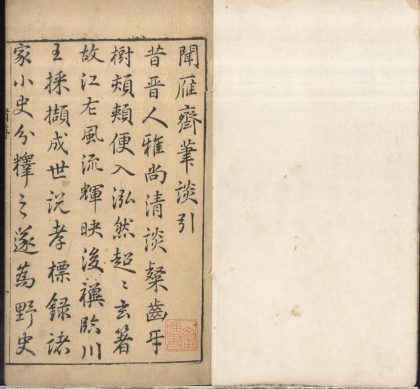 聞雁齋筆談引
昔晉人雅尚清談粲齒牙
樹頰頦便入泓然超〻玄箸
故江左風流輝映後禩臨川
王採擷成世說孝標錄諸
家小史分釋之遂為野史